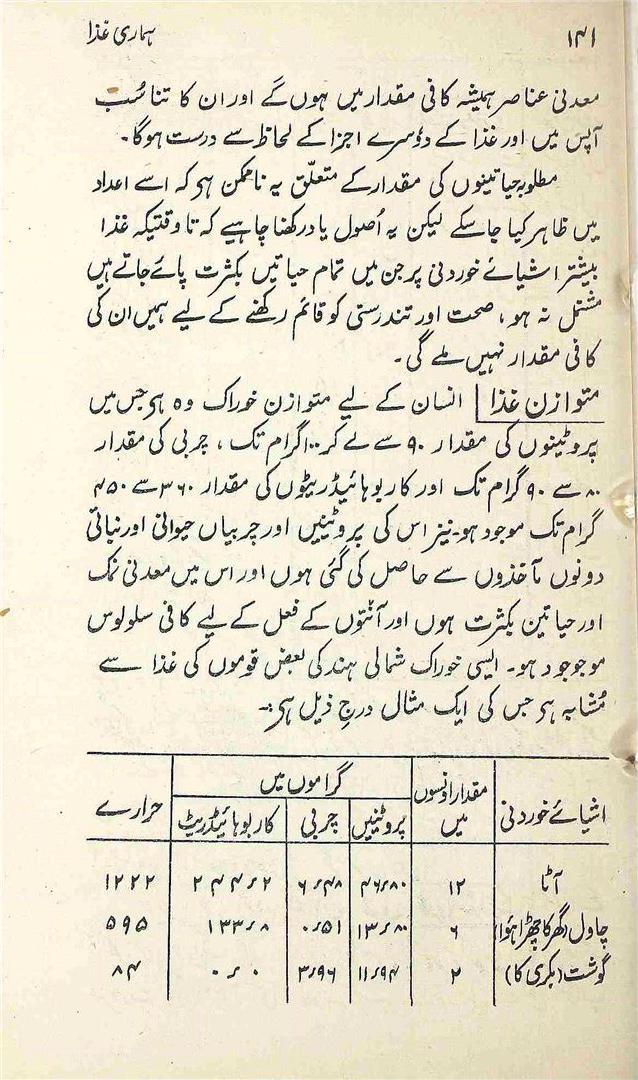 ہماری غذا ۱۴۱
معدنی عناصر ہمیشہ کافی مقدار میں ہوں گے اور ان کا تناسُب
آپس میں اور غذا کے دوٗسرے اجزا کے لحاظ سے درست ہوگا۔
مطلوبہ حیاتینوں کی مقدار کے متعلّق یہ ناممکن ہی کہ اسے اعداد
میں ظاہر کیا جاسکے لیکن یہ اُصول یاد رکھنا چاہیے کہ تا وقتیکہ غذا
بیشتر اشیائے خوردنی پر جن میں تمام حیاتیں بکثرت پائے جاتے ہیں
مشتمل نہ ہو، صحت اور تندرستی کو قائم رکھنے کے لیے ہمیں ان کی
کافی مقدار نہیں ملے گی۔
متوازن غذا انسان کے لیے متوازن خوراک وہ ہی جس میں
پروٹینوں کی مقدار ۹۰ سے لے کر ۱۰۰ گرام تک، چربی کی مقدار
۸۰ سے ۹۰ گرام تک اور کاربوہائیڈریٹوں کی مقدار ۳۶۰ سے ۴۵۰
گرام تک موجود ہو۔ نیز اس کی پروٹینیں اور چربیاں حیوانی اور نباتی
دونوں مآخذوں سے حاصل کی گئی ہوں اور اس میں معدنی نمک
اور حیاتین بکثرت ہوں اور آنتوں کے فعل کے لیے کافی سلولوس
موجود ہو۔ ایسی خوراک شمالی ہند کی بعض قوموں کی غذا سے
مُشابہ ہی جس کی ایک مثال درجِ ذیل ہی:۔
اشیائے خوردنی مقدار اونسوں میں گراموں میں حرارے
پروٹینیں چربی کاربوہائیڈریٹ
آٹا ۱۲ ۴۶٫۸۰ ۶٫۴۸ ۲۴۴٫۲ ۱۲۲۲
چاول (گھر کا چھڑا ہوٗا) ۶ ۱۳٫۸۰ ۰٫۵۱ ۱۳۳٫۸ ۵۹۵
گوشت (بکری کا) ۲ ۱۱٫۹۴ ۳٫۹۶ ۰٫۰ ۸۴